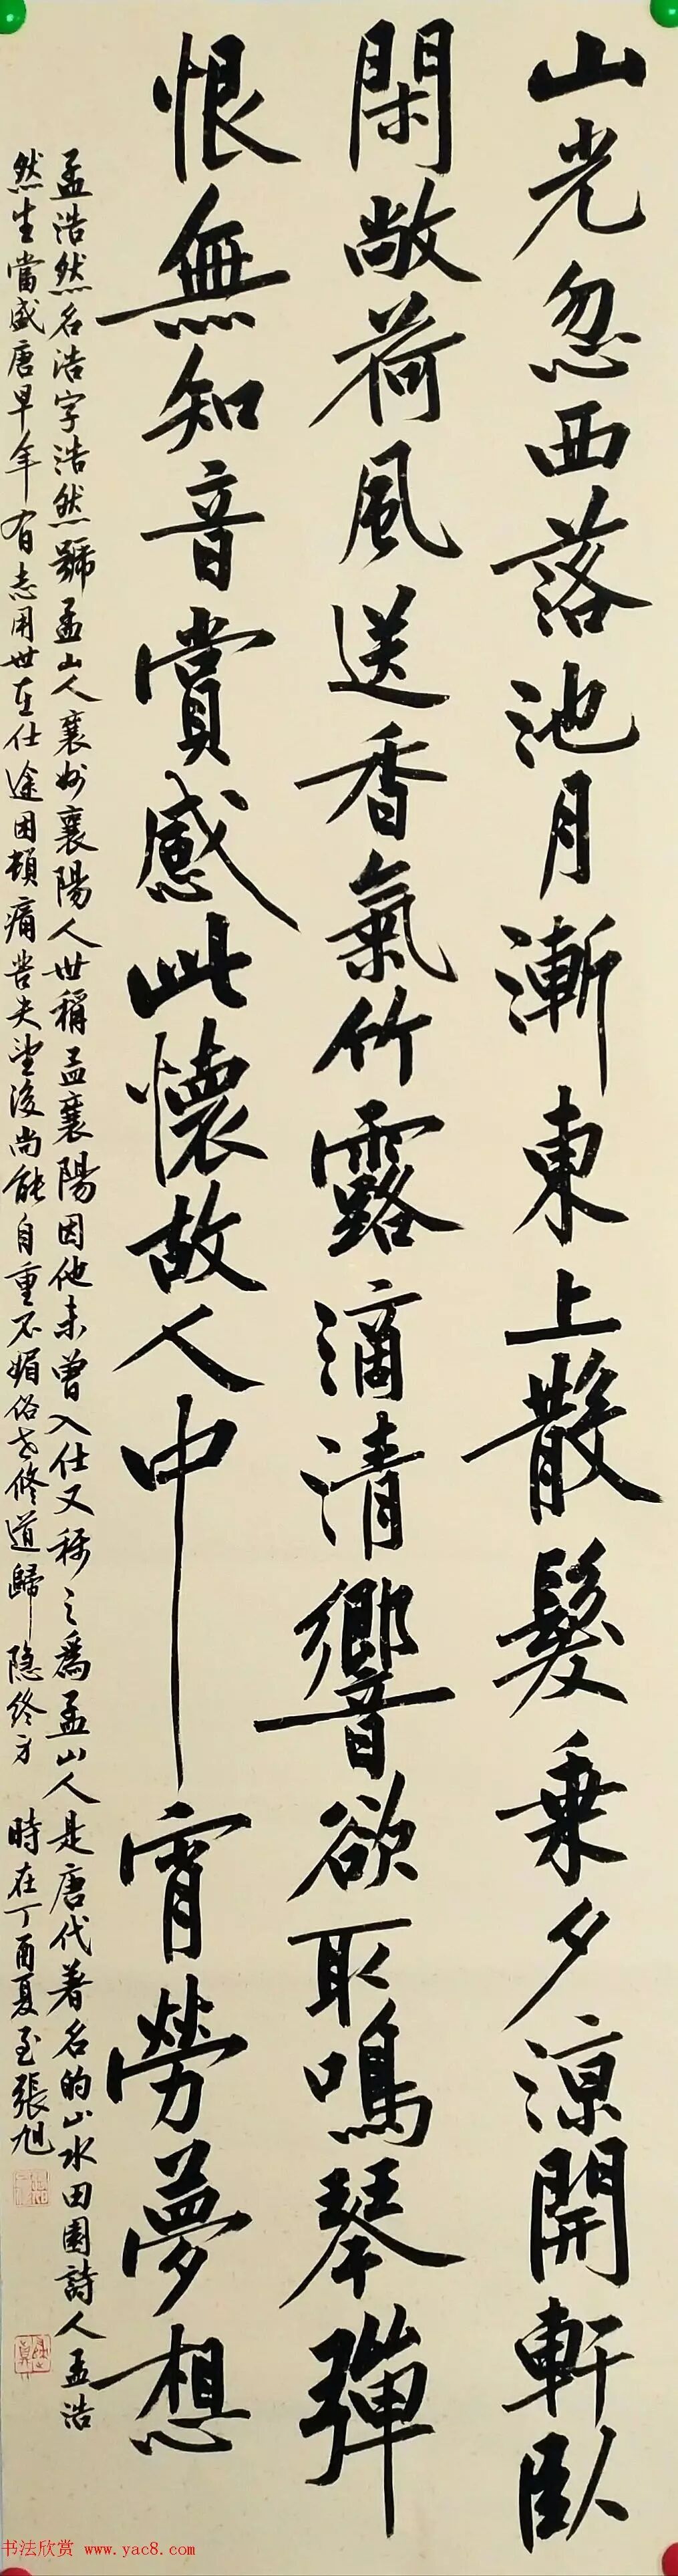 山光忽西落池月漸東上散髮乘夕涼開軒臥
閑敞荷風送香氣竹露滴清響欲取鳴琴彈
恨無知音賞感此懷故人中宵勞夢想
孟浩然名浩字浩然號孟山人襄州襄陽人世稱孟襄陽因他未曾入仕又稱之為孟山人是唐代著名的山水田園詩人孟浩
然生當盛唐早年有志用世在仕途困頓痛苦失望後尚能自重不媚俗世修道歸隐終身 時在丁酉夏至張旭
书法欣赏 www.yac8.com